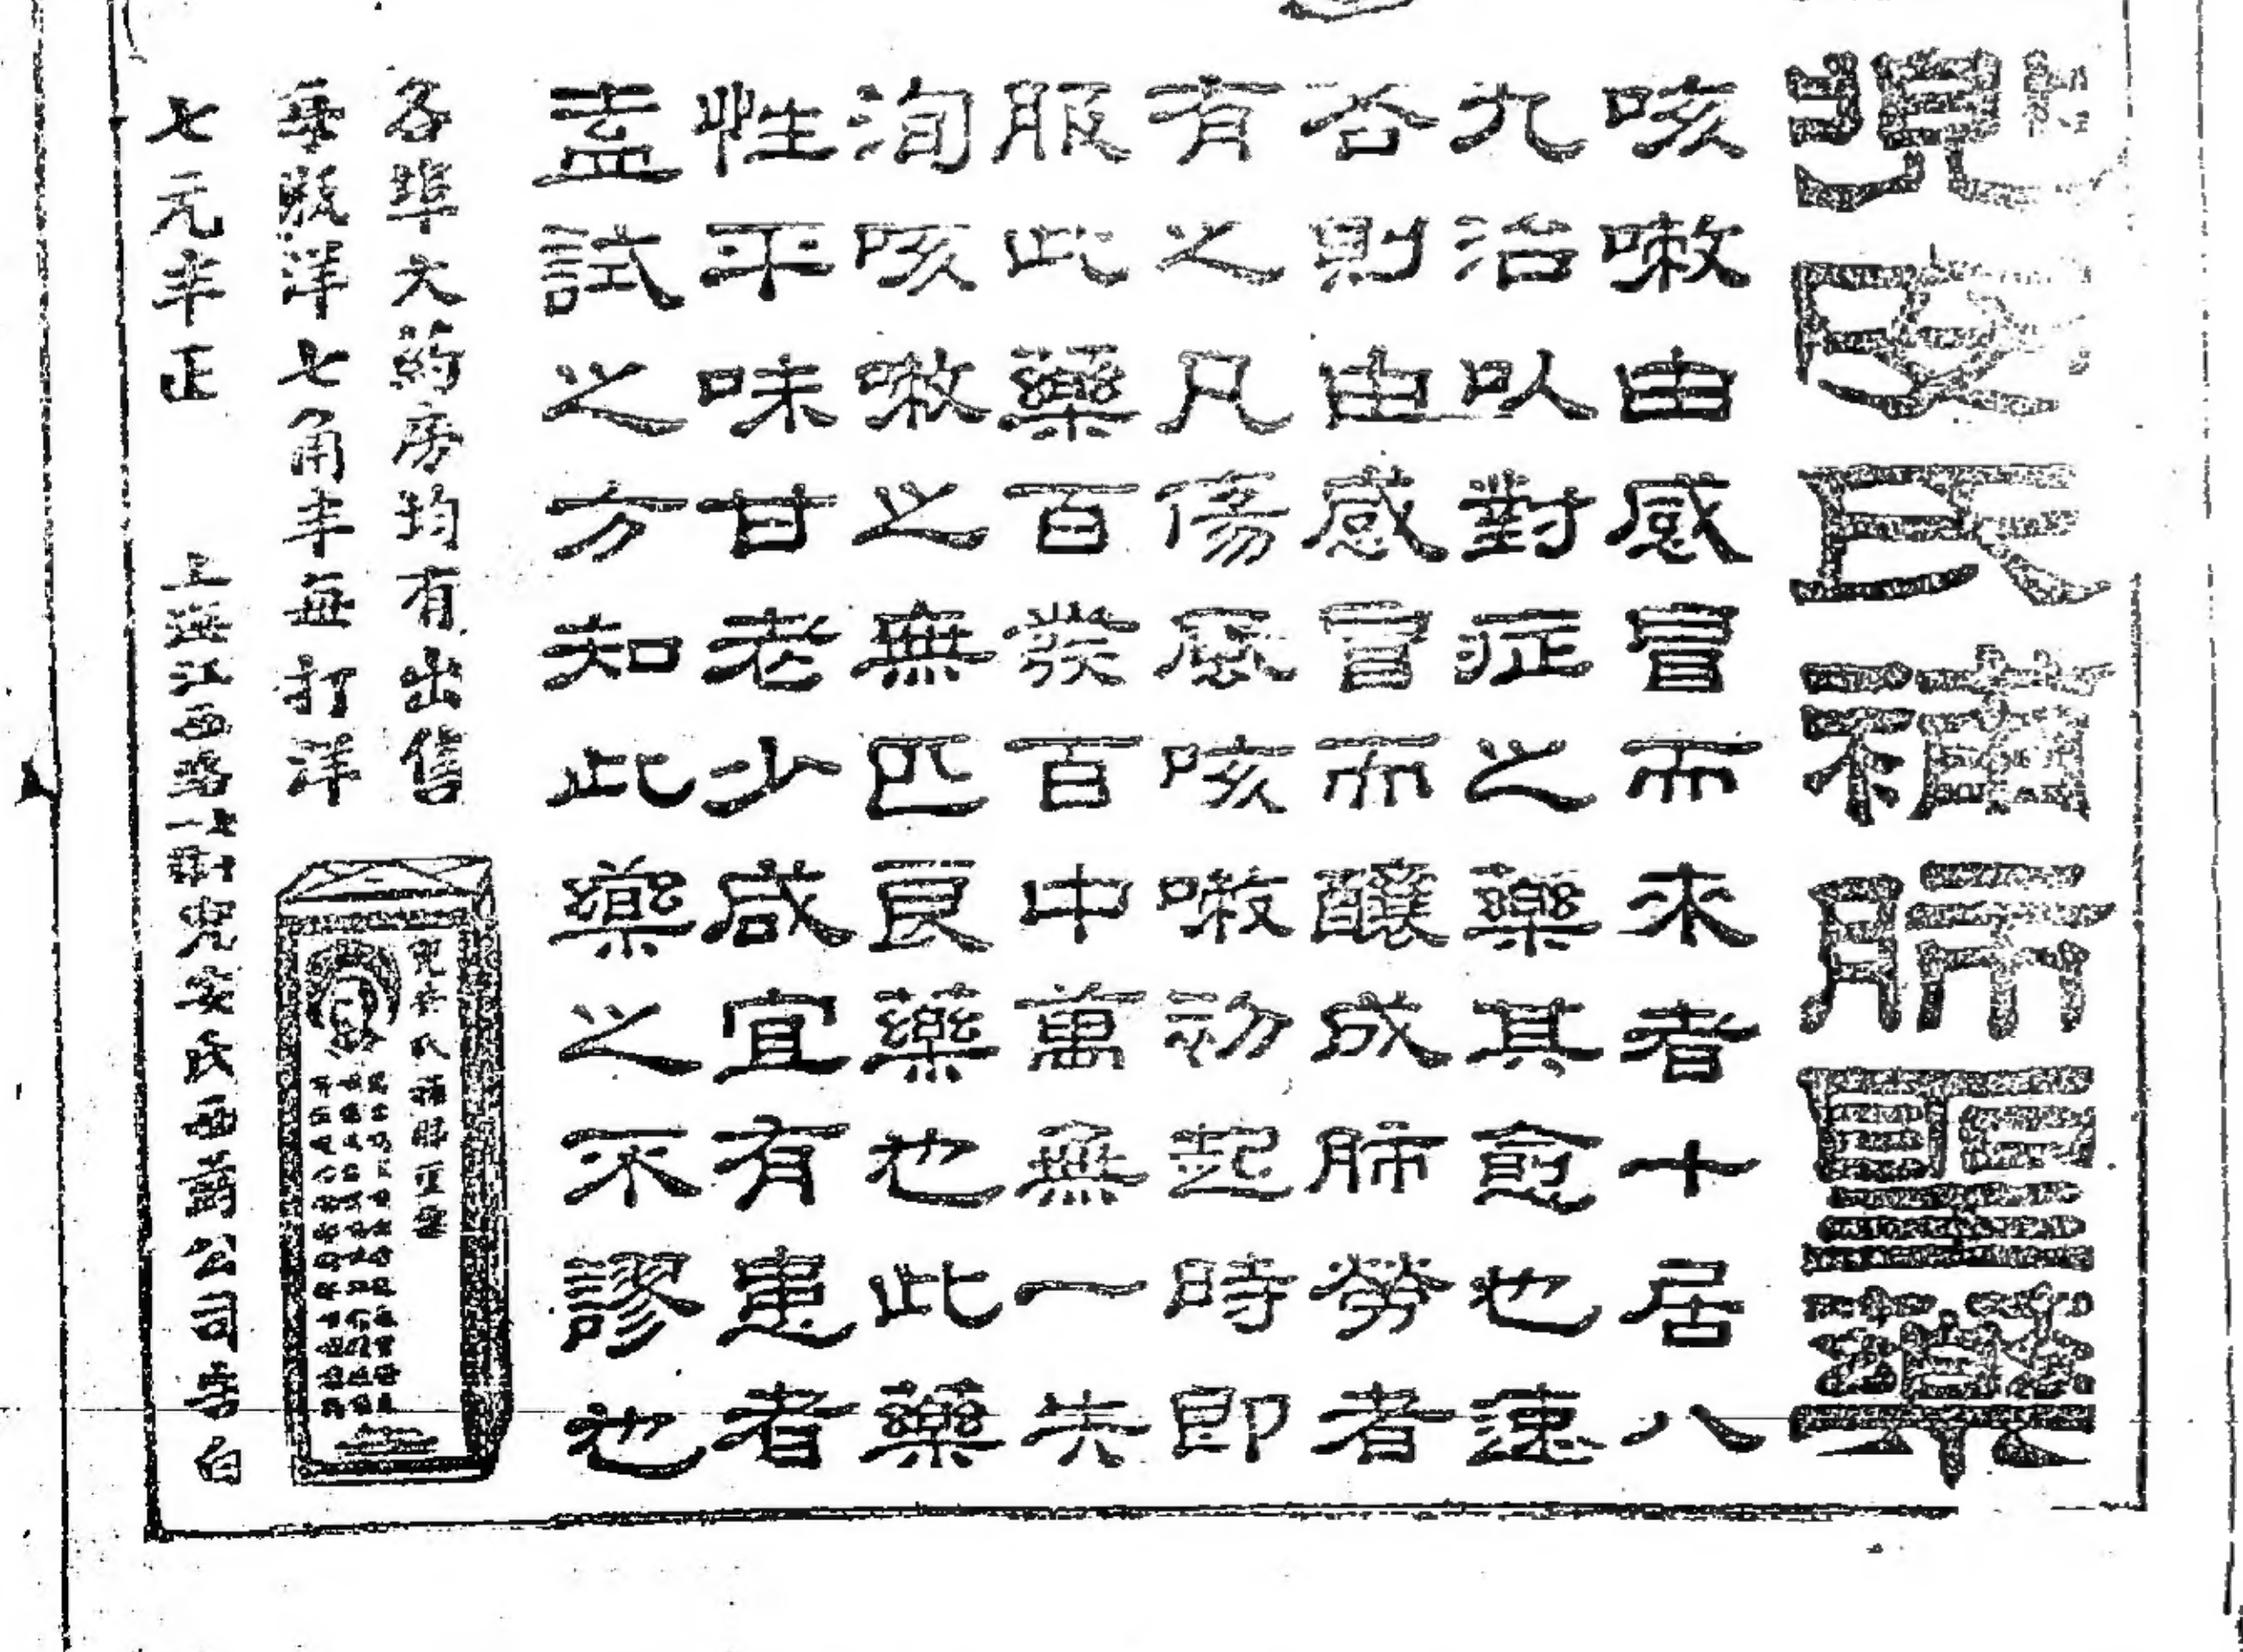 兜安氏補肺聖藥
咳嗽由感冒而來者十居八
九治以對症之藥其愈也速
否則由感冒而釀成肺癆者
有之凡傷感咳嗽初起時即
服此藥百發百中萬無一失
洵咳嗽之無匹良藥也此藥
性平味甘老少咸宜有患者
盍試之方知此藥之不謬也
各埠大药房均有出售
每瓶洋七角半每打洋
七元半正
上海江西路 兜安氏西藥公司告白
兜安氏補肺聖藥